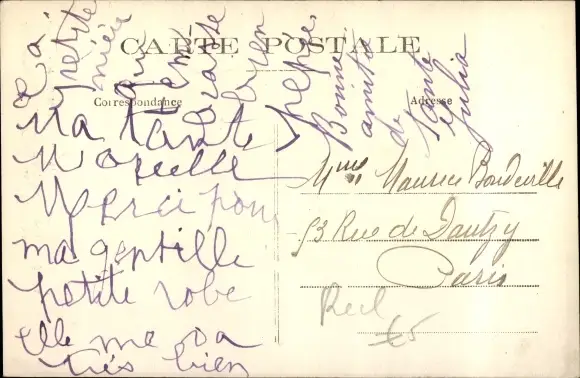 CARTE POSTALE
Correspondance
Adresse
Ma Tante
Marcelle
Merci pour
ma gentille
petite robe
elle me va
très bien
La
petite
nièce
qui
t'aime
bien
Bonne
amitié
de
Tante
Julia
Mme Maurice Bondeville
53 Rue de Dantzig
Paris
€5